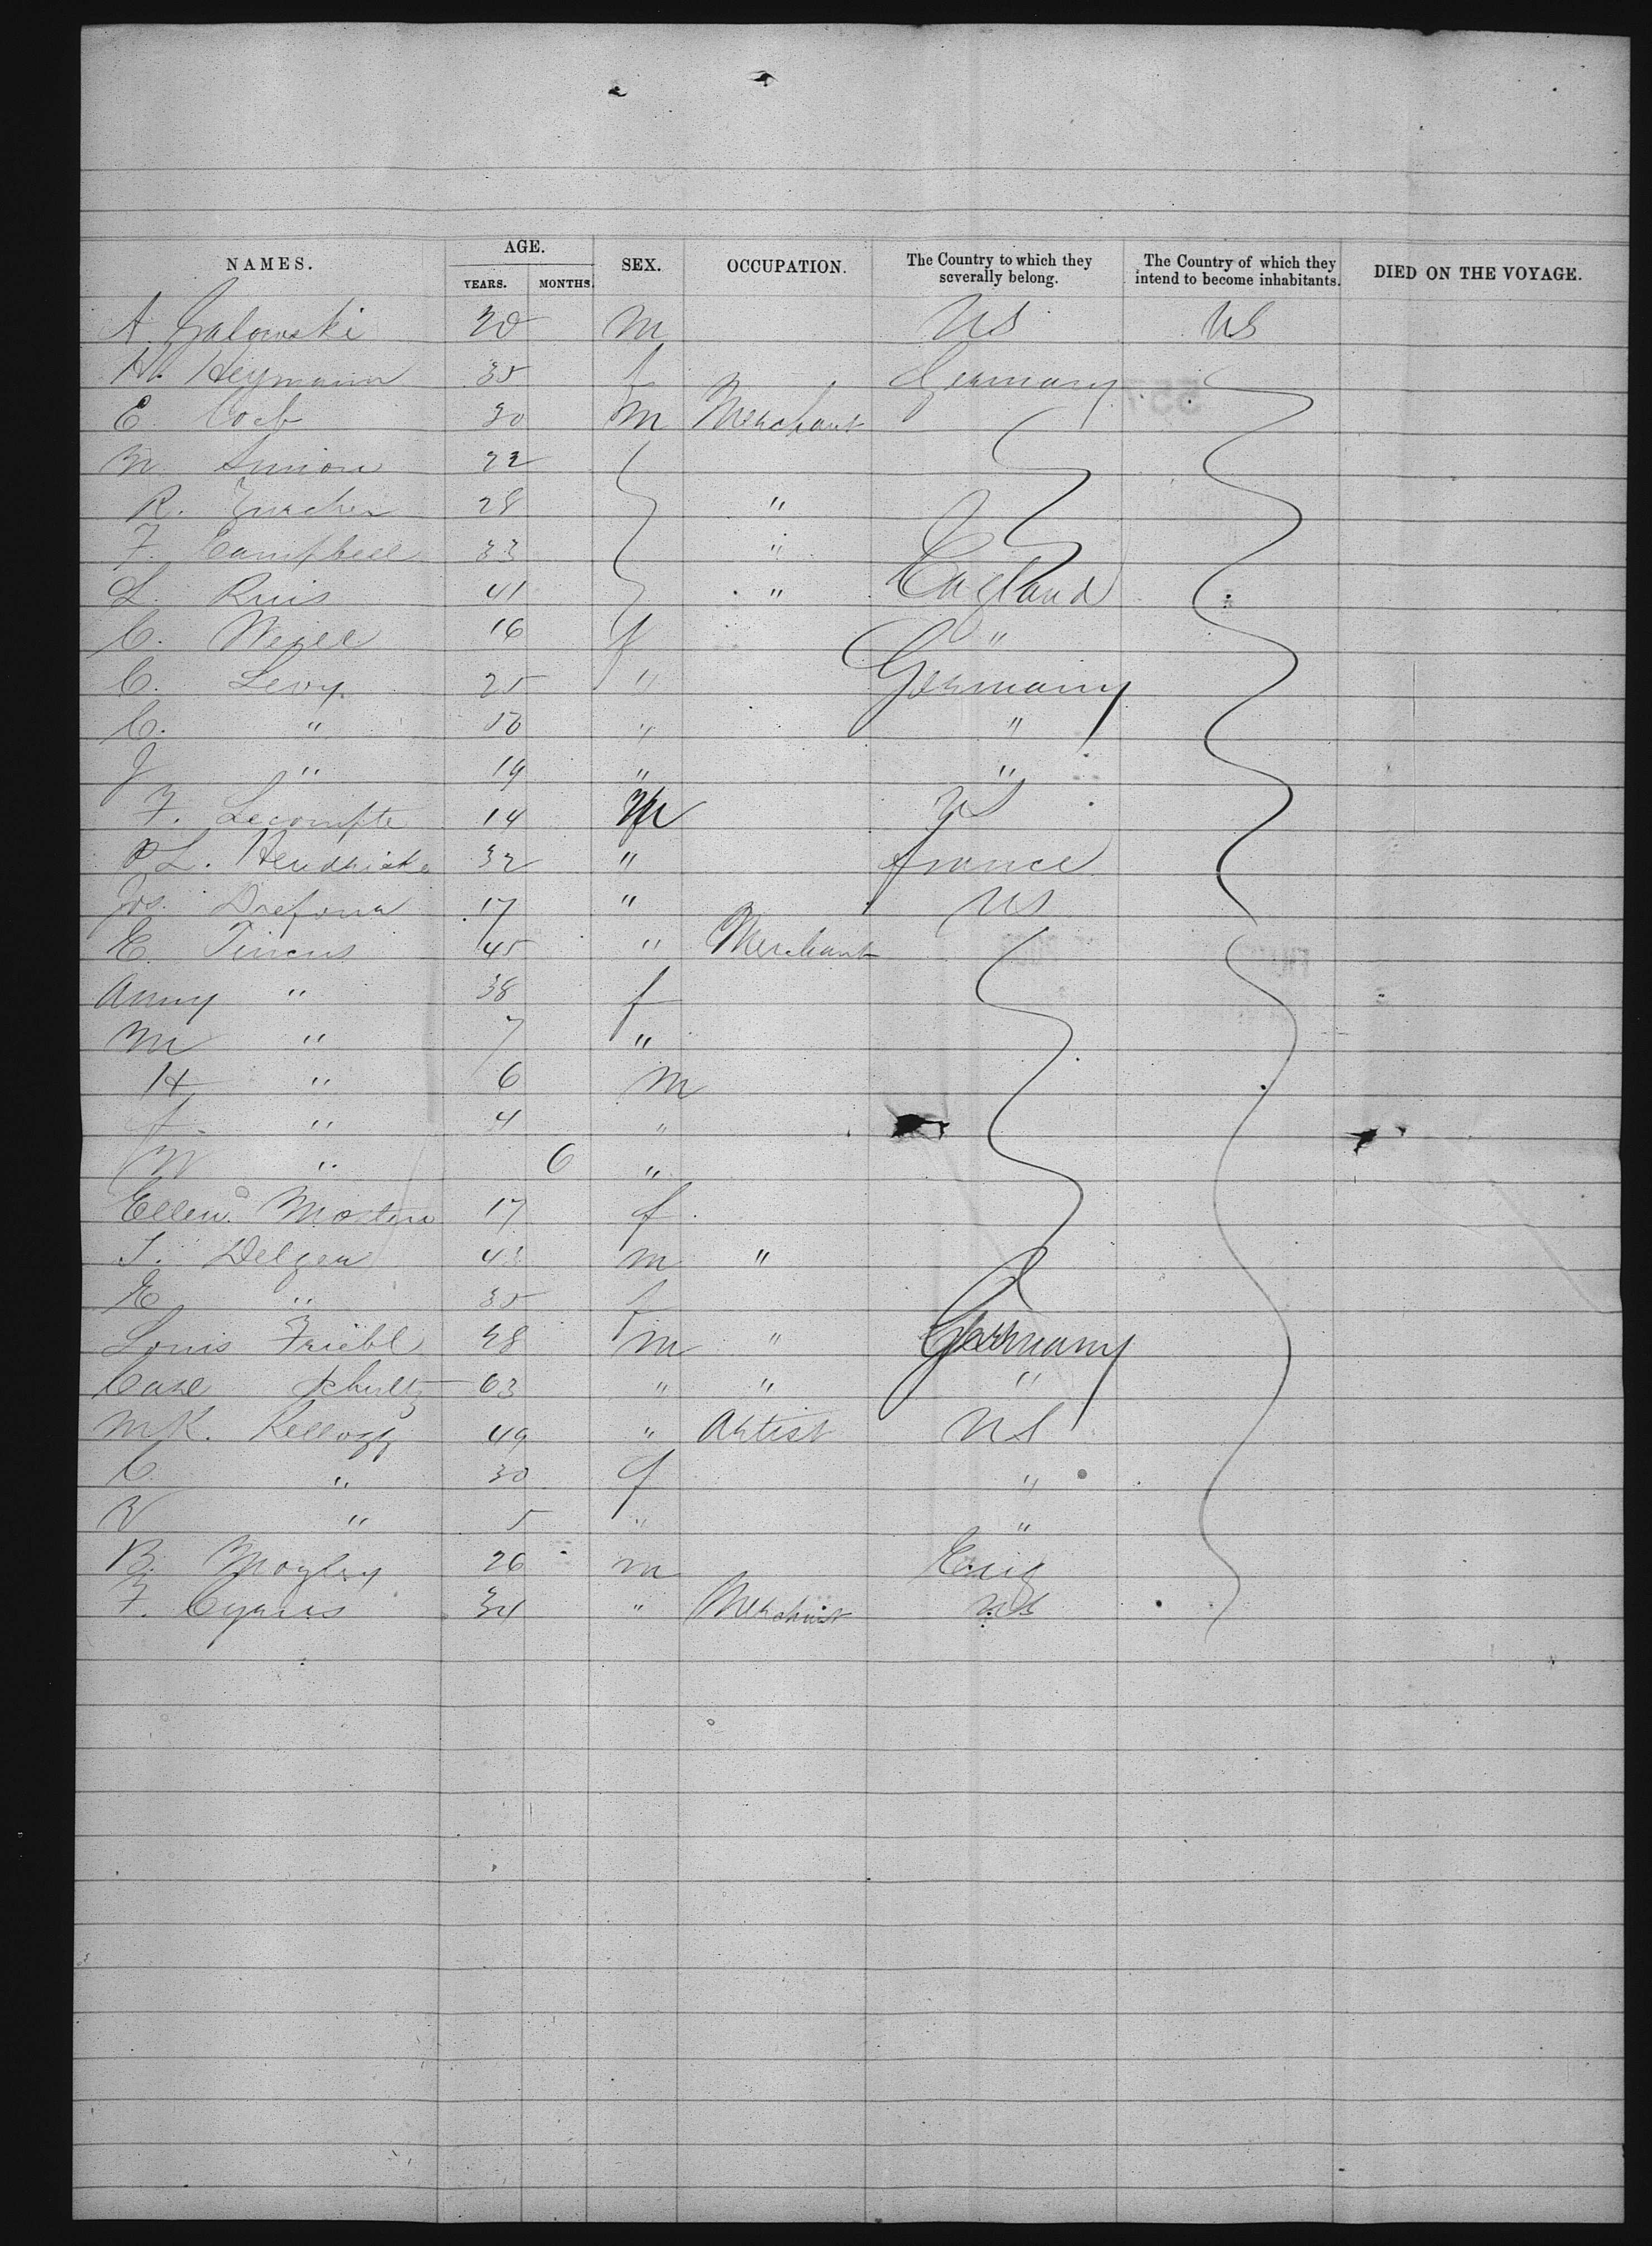 NAMES. AGE. YEARS. MONTHS. SEX. OCCUPATION. The Country to which they severally belong. The Country of which they intend to become inhabitants. DIED ON THE VOYAGE.
A. 30 m US US
H. Heymann 35 f Germany
E. 30 m Merchant
M Simon 22
R. Zurcher 28 "
F. Campbell 33 "
L. Ruis 41 " England
C. 16 f "
C. Levy 25 " Germany
C. " "
J " 19 " "
F. Lecompte 14 m US
P L. Hendricks 32 " France
Jos. 17 " US
E. Pincus 45 " Merchant
Anny " 38 f
M " 7 "
H " 6 m
" 4 "
" 6 "
Ellen 17 f
43 m "
E " 35 f
Louis Friebl 38 m " Germany
Carl Schultz 63 " " "
M K. Kellogg 49 " Artist US
C. " 30 f "
V " 5 " "
B. Mozley 26 m Eng
F. Cyarus 34 " Merchant US